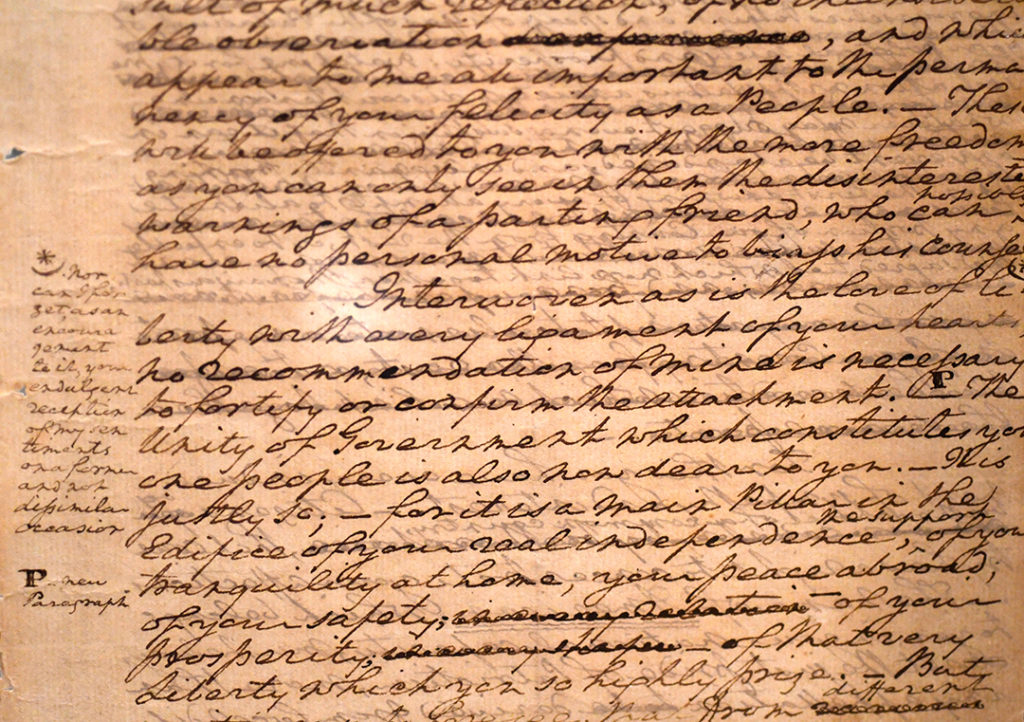 sult of much reflection, of no inconsidera
ble observation, and which
appear to me all important to the perma
nency of your felicity as a People. — These
will be offered to you with the more freedom
as you can only see in them the disinterested
possibly
warnings of a parting friend, who can
have no personal motive to biass his counsel.
Interwoven as is the love of li
berty with every ligament of your hearts
no recommendation of mine is necessary
to fortify or confirm the attachment. P — The
Unity of Government which constitutes you
one people is also now dear to you. — It is
justly so; — for it is a main Pillar in the
the support
Edifice of your real independence, of your
tranquility at home, your peace abroad;
of your safety; in every relation — of your
prosperity; in every shape — of that very
Liberty which you so highly prize. — But
different
from
* Nor
can I for
get, as an
encoura
gement
to it, your
endulgent
reception
of my sen
timents
on a former
and not
dissimilar
occasion
P — new
Paragraph